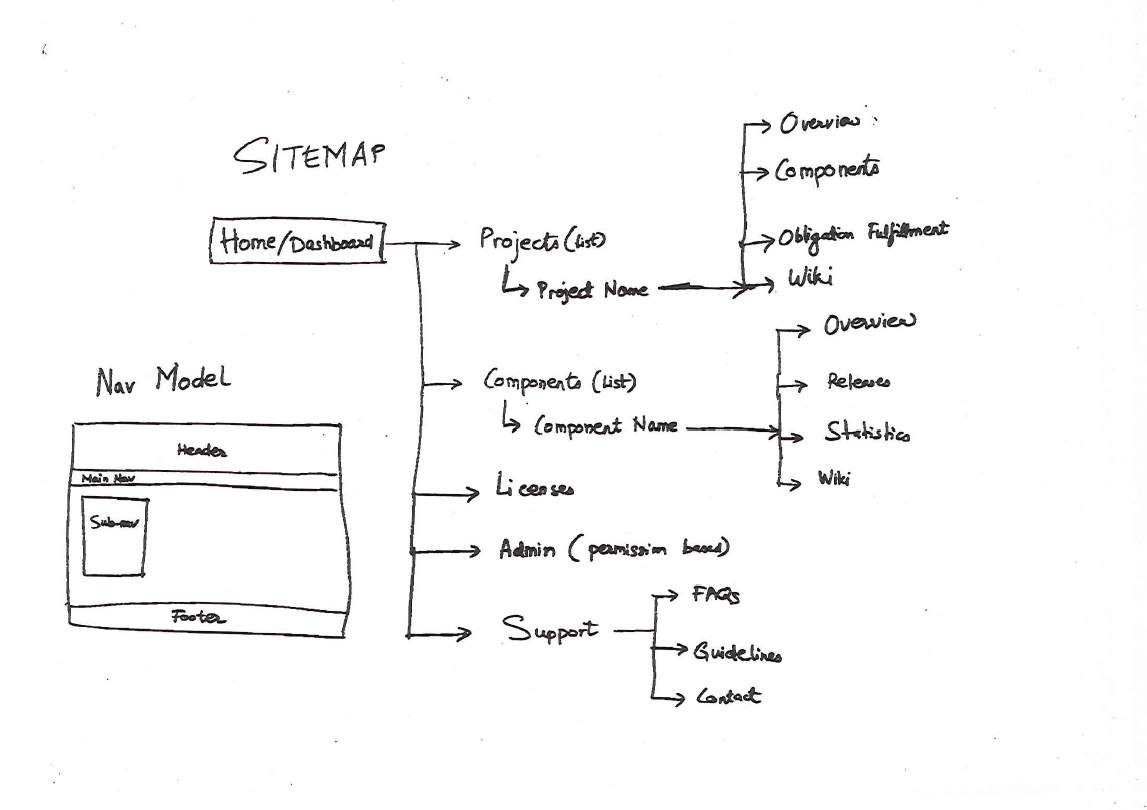 SITEMAP
Home/Dashboard
Projects (List)
Project Name
Overview
Components
Obligation Fulfillment
Wiki
Components (List)
Component Name
Overview
Releases
Statistics
Wiki
Licenses
Admin (permission based)
Support
FAQs
Guidelines
Contact
Nav Model
Header
Main Nav
Sub-nav
Footer